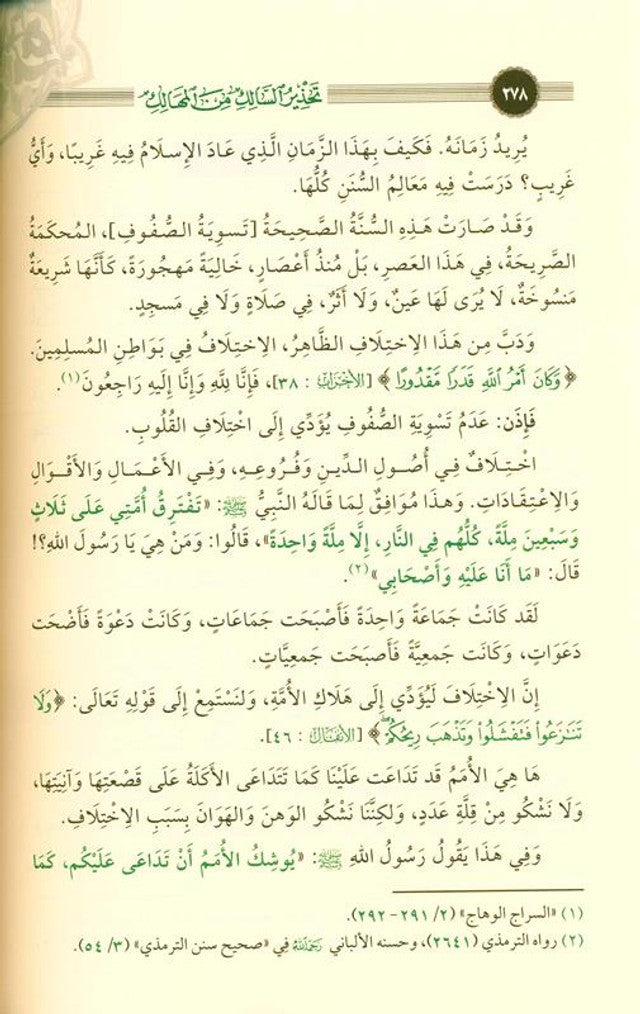 ٢٧٨
تَحْذِيرُ السَّالِكِ مِنَ الْمَهَالِكِ
يُرِيدُ زَمَانَهُ. فَكَيفَ بِهَذَا الزَّمَانِ الَّذِي عَادَ الإِسلَامُ فِيهِ غَرِيبًا، وَأَيُّ
غَرِيبٍ؟ دَرَسَتْ فِيهِ مَعَالِمُ السُّنَنِ كُلُّهَا.
وَقَدْ صَارَتْ هَذِهِ السُّنَّةُ الصَّحِيحَةُ [تَسوِيَةُ الصُّفُوفِ]، المُحكَمَةُ
الصَّرِيحَةُ، فِي هَذَا العَصرِ، بَلْ مُنذُ أَعْصَارٍ، خَالِيَةً مَهجُورَةً، كَأَنَّهَا شَرِيعَةٌ
مَنسُوخَةٌ، لَا يُرَى لَهَا عَينٌ، وَلَا أَثَرٌ، فِي صَلَاةٍ وَلَا فِي مَسجِدٍ.
وَدَبَّ مِن هَذَا الِاختِلَافِ الظَّاهِرُ، الِاختِلَافُ فِي بَوَاطِنِ المُسلِمِينَ.
﴿وَكَانَ أَمْرُ ٱللَّهِ قَدَرًا مَّقْدُورًا﴾ [الأحزاب : ٣٨]، فَإِنَّا لِلَّهِ وَإِنَّا إِلَيهِ رَاجِعُونَ(١).
فَإِذَن: عَدَمُ تَسْوِيَةِ الصُّفُوفِ يُؤَدِّي إِلَى اخْتِلَافِ القُلُوبِ.
اخْتِلَافٌ فِي أُصُولِ الدِّينِ وَفُرُوعِهِ، وَفِي الأَعْمَالِ وَالأَقْوَالِ
وَالِاعْتِقَادَاتِ. وَهذَا مُوَافِقٌ لِمَا قَالَهُ النَّبِيُّ ﷺ: «تَفْتَرِقُ أُمَّتِي عَلَى ثَلَاثٍ
وَسَبْعِينَ مِلَّةً، كُلُّهُم فِي النَّارِ، إِلَّا مِلَّةً وَاحِدَةً»، قَالُوا: وَمَنْ هِيَ يَا رَسُولَ اللهِ؟!
قَالَ: «مَا أَنَا عَلَيْهِ وَأَصْحَابِي»(٢).
لَقَد كَانَتْ جَمَاعَةً وَاحِدَةً فَأَصْبَحَت جَمَاعَاتٍ، وَكَانَتْ دَعْوَةً فَأَضْحَت
دَعَوَاتٍ، وَكَانَت جَمعِيَّةً فَأَصبَحَت جَمعِيَّاتٍ.
إِنَّ الِاخْتِلَافَ لَيُؤَدِّي إِلَى هَلَاكِ الأُمَّةِ، وَلنَستَمِعْ إِلَى قَوْلِهِ تَعَالَى: ﴿وَلَا
تَنَٰزَعُوا۟ فَتَفْشَلُوا۟ وَتَذْهَبَ رِيحُكُمْ ۖ﴾ [الأنفال : ٤٦].
هَا هِيَ الأُمَمُ قَد تَدَاعَت عَلَيْنَا كَمَا تَتَدَاعَى الأَكَلَةُ عَلَى قَصْعَتِهَا وَآنِيَتِهَا،
وَلَا نَشْكُو مِنْ قِلَّةِ عَدَدٍ، وَلكِنَّنَا نَشْكُو الوَهنَ وَالهَوَانَ بِسَبَبِ الِاخْتِلَافِ.
وَفِي هَذَا يَقُولُ رَسُولُ اللهِ ﷺ: «يُوشِكُ الأُمَمُ أَنْ تَدَاعَى عَلَيْكُم، كَمَا
(١) «السراج الوهاج» (٢/ ٢٩١-٢٩٢).
(٢) رواه الترمذي (٢٦٤١)، وحسنه الألباني رَحِمَهُ اللَّهُ فِي «صحيح سنن الترمذي» (٣/ ٥٤).